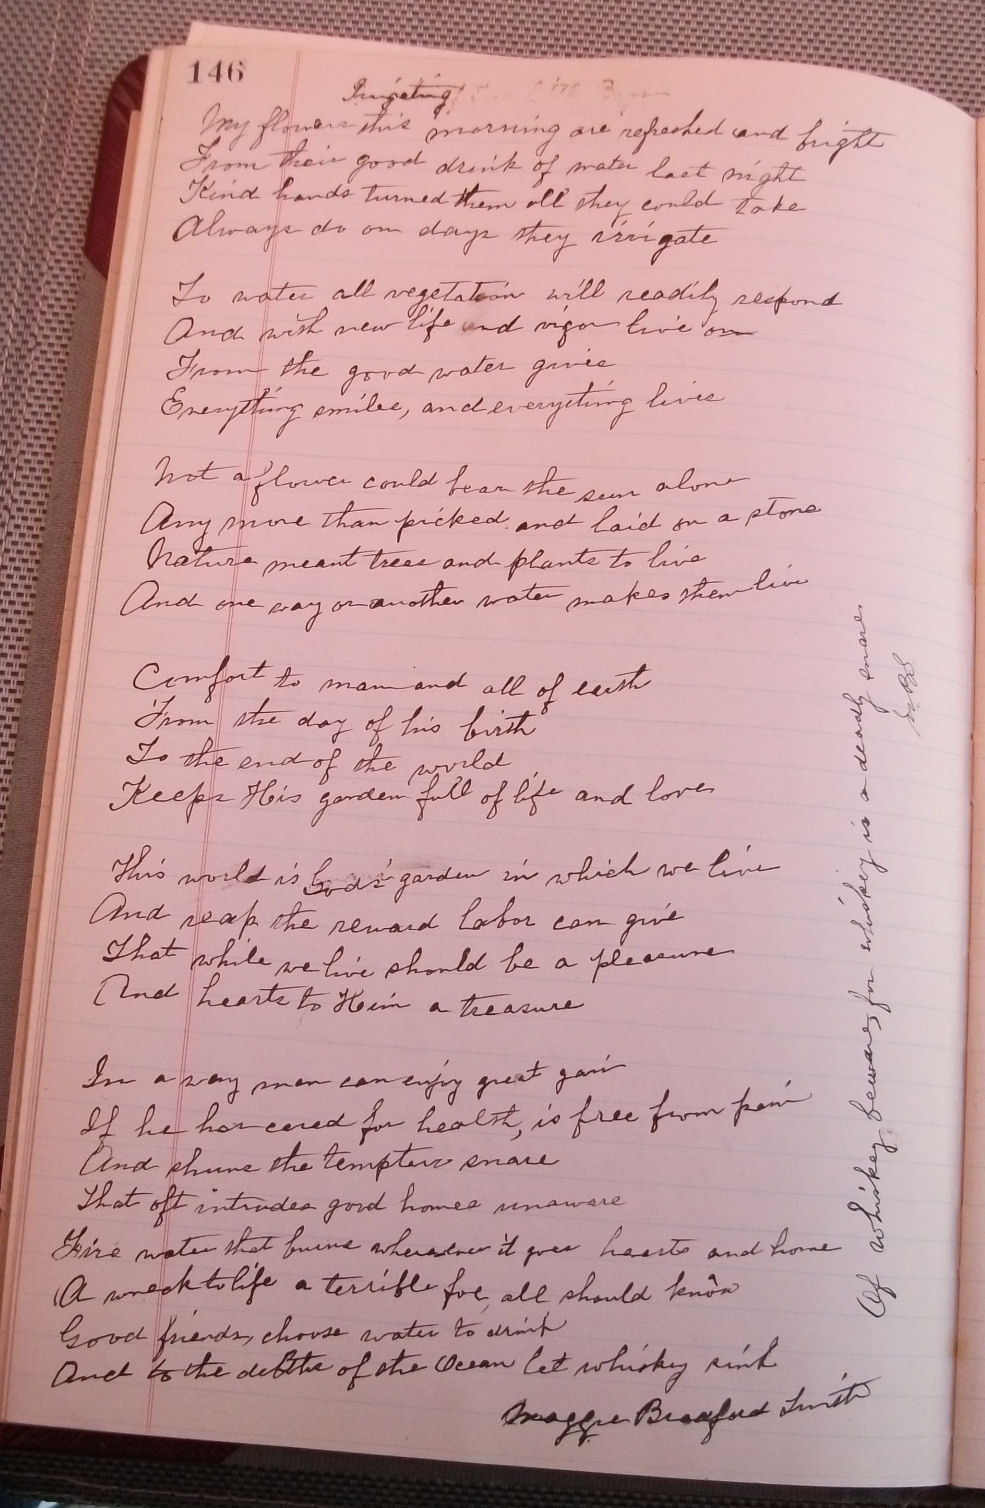 146
Irrigating
My flowers this morning are refreshed and bright
From their good drink of water last night
Kind hands turned them all they could take
Always do on days they irrigate
To water all vegetation will readily respond
And with new life and vigor live on
From the good water gives
Everything smiles, and everything lives
Not a flower could bear the sun alone
Any more than picked and laid on a stone
Nature meant trees and plants to live
And one way or another water makes them live
Comfort to man and all of earth
From the day of his birth
To the end of the world
Keeps His garden full of life and love
This world is God's garden in which we live
And reap the reward labor can give
That while we live should be a pleasure
And hearts to Him a treasure
In a way man can enjoy great gain
If he has cared for health, is free from pain
And shuns the tempters snare
That oft intrudes good homes unaware
Fire water that burns wherever it goes hearts and home
A wreck to life a terrible foe, all should know
Good friends, choose water to drink
And to the debths of the Ocean let whiskey sink
Maggie Bradford Smith
Of whiskey beware, for whiskey is a deadly snare.
M.B.S.